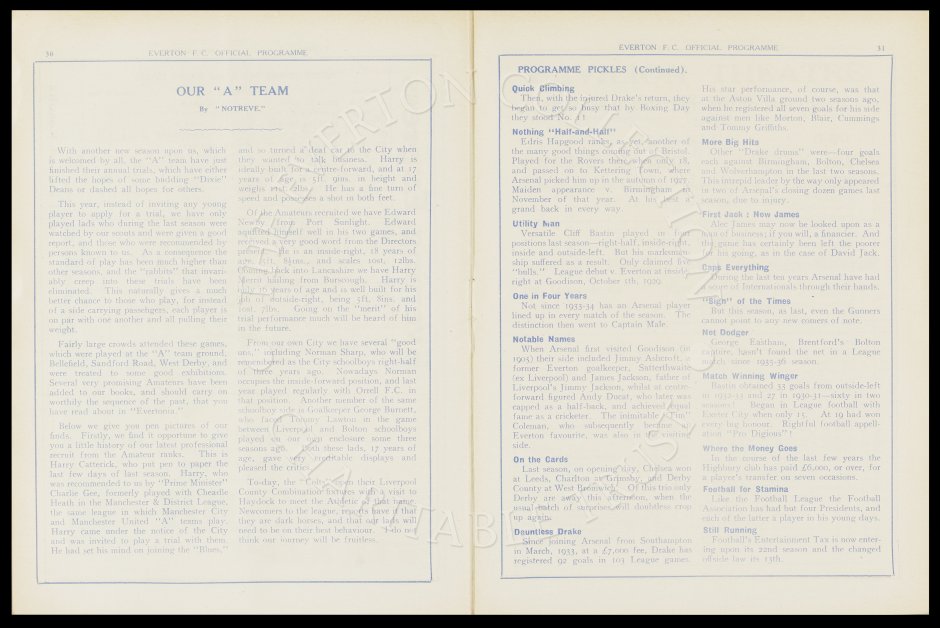 30
EVERTON F.C. OFFICIAL PROGRAMME
OUR "A" TEAM
By "NOTREVE."
With another new season upon us, which
is welcomed by all, the "A" team have just
finished their annual trials, which have either
lifted the hopes of some budding "Dixie"
Deans or dashed all hopes for others.
This year, instead of inviting any young
player to apply for a trial, we have only
played lads who during the last season were
watched by our scouts and were given a good
report, and those who were recommended by
persons known to us. As a consequence the
standard of play has been much higher than
other seasons, and the "rabbits" that invari-
ably creep into these trials have been
eliminated. This naturally gives a much
better chance to those who play, for instead
of a side carrying passengers, each player is
on par with one another and all pulling their
weight.
Fairly large crowds attended these games,
which were played at the "A" team ground,
Bellefield, Sandford Road, West Derby, and
were treated to some good exhibitions.
Several very promising Amateurs have been
added to our books, and should carry on
worthily the sequence of the past, that you
have read about in "Evertonia."
Below we give you pen pictures of our
finds. Firstly, we find it opportune to give
you a little history of our latest professional
recruit from the Amateur ranks. This is
Harry Catterick, who put pen to paper the
last few days of last season. Harry, who
was recommended to us by "Prime Minister"
Charlie Gee, formerly played with Cheadle
Heath in the Manchester & District League,
the same league in which Manchester City
and Manchester United "A" teams play.
Harry came under the notice of the City
and was invited to play a trial with them.
He had set his mind on joining the "Blues,"
and so turned a deaf ear to the City when
they wanted to talk business. Harry is
ideally built for a centre-forward, and at 17
years of age is 5ft. 9ins. in height and
weighs 11st. 2lbs. He has a fine turn of
speed and possesses a shot in both feet.
Of the Amateurs recruited we have Edward
Newby from Port Sunlight. Edward
acquitted himself well in his two games, and
received a very good word from the Directors
present. He is an inside-right, 18 years of
age, 5ft. 8ins., and scales 10st. 12lbs.
Coming back into Lancashire we have Harry
Merrit hailing from Burscough. Harry is
only 16 years of age and is well built for his
job of outside-right, being 5ft. 8ins. and
10st. 7lbs. Going on the "merit" of his
trial performance much will be heard of him
in the future.
From our own City we have several "good
uns," including Norman Sharp, who will be
remembered as the City schoolboys right-half
of three years ago. Nowadays Norman
occupies the inside-forward position, and last
year played regularly with Orrell F.C. in
that position. Another member of the same
schoolboy side is Goalkeeper George Burnett,
who faced Tommy Lawton in the game
between Liverpool and Bolton schoolboys
played on our own enclosure some three
seasons ago. Both these lads, 17 years of
age, gave very creditable displays and
pleased the critics.
To-day, the "Colts" open their Liverpool
County Combination fixtures with a visit to
Haydock to meet the Athletic of that name.
Newcomers to the league, rumours have it that
they are dark horses, and that our lads will
need to be on their best behaviour. I do not
think our journey will be fruitless.
EVERTON F.C. OFFICIAL PROGRAMME
31
PROGRAMME PICKLES (Continued).
Quick Climbing
Then, with the injured Drake's return, they
began to get so busy that by Boxing Day
they stood No. 1!
Nothing "Half-and-Half"
Edris Hapgood ranks, as yet, another of
the many good things coming out of Bristol.
Played for the Rovers there when only 18,
and passed on to Kettering Town, where
Arsenal picked him up in the autumn of 1927.
Maiden appearance v. Birmingham in
November of that year. At his best a
grand back in every way.
Utility Man
Versatile Cliff Bastin played in four
positions last season—right-half, inside-right,
inside and outside-left. But his marksman-
ship suffered as a result. Only claimed five
"bulls." League debut v. Everton at inside-
right at Goodison, October 5th, 1929.
One in Four Years
Not since 1933-34 has an Arsenal player
lined up in every match of the season. The
distinction then went to Captain Male.
Notable Names
When Arsenal first visited Goodison (in
1905) their side included Jimmy Ashcroft, a
former Everton goalkeeper, Satterthwaite
(ex Liverpool) and James Jackson, father of
Liverpool's Jimmy Jackson, whilst at centre-
forward figured Andy Ducat, who later was
capped as a half-back, and achieved equal
fame as a cricketer. The inimitable "Tim"
Coleman, who subsequently became an
Everton favourite, was also in the visiting
side.
On the Cards
Last season, on opening day, Chelsea won
at Leeds, Charlton at Grimsby, and Derby
County at West Bromwich. Of this trio only
Derby are away this afternoon, when the
usual batch of surprises will doubtless crop
up again.
Dauntless Drake
Since joining Arsenal from Southampton
in March, 1933, at a £7,000 fee, Drake has
registered 92 goals in 103 League games.
His star performance, of course, was that
at the Aston Villa ground two seasons ago,
when he registered all seven goals for his side
against men like Morton, Blair, Cummings
and Tommy Griffiths.
More Big Hits
Other "Drake drums" were—four goals
each against Birmingham, Bolton, Chelsea
and Wolverhampton in the last two seasons.
This intrepid leader by the way only appeared
in two of Arsenal's closing dozen games last
season, due to injury.
First Jack : Now James
Alec James may now be looked upon as a
man of business; if you will, a financier. And
the game has certainly been left the poorer
for his going, as in the case of David Jack.
Caps Everything
During the last ten years Arsenal have had
a score of Internationals through their hands.
"Sign" of the Times
But this season, as last, even the Gunners
cannot point to any new comers of note.
Net Dodger
George Eastham, Brentford's Bolton
capture, hasn't found the net in a League
match since 1935-36 season.
Match Winning Winger
Bastin obtained 33 goals from outside-left
in 1932-33 and 27 in 1930-31—sixty in two
seasons! Began in League football with
Exeter City when only 15. At 19 had won
every big honour. Rightful football appell-
ation "Pro Digious"!
Where the Money Goes
In the course of the last few years the
Highbury club has paid £6,000, or over, for
a player's transfer on seven occasions.
Football for Stamina
Like the Football League the Football
Association has had but four Presidents, and
each of the latter a player in his young days.
Still Running
Football's Entertainment Tax is now enter-
ing upon its 22nd season and the changed
offside law its 13th.